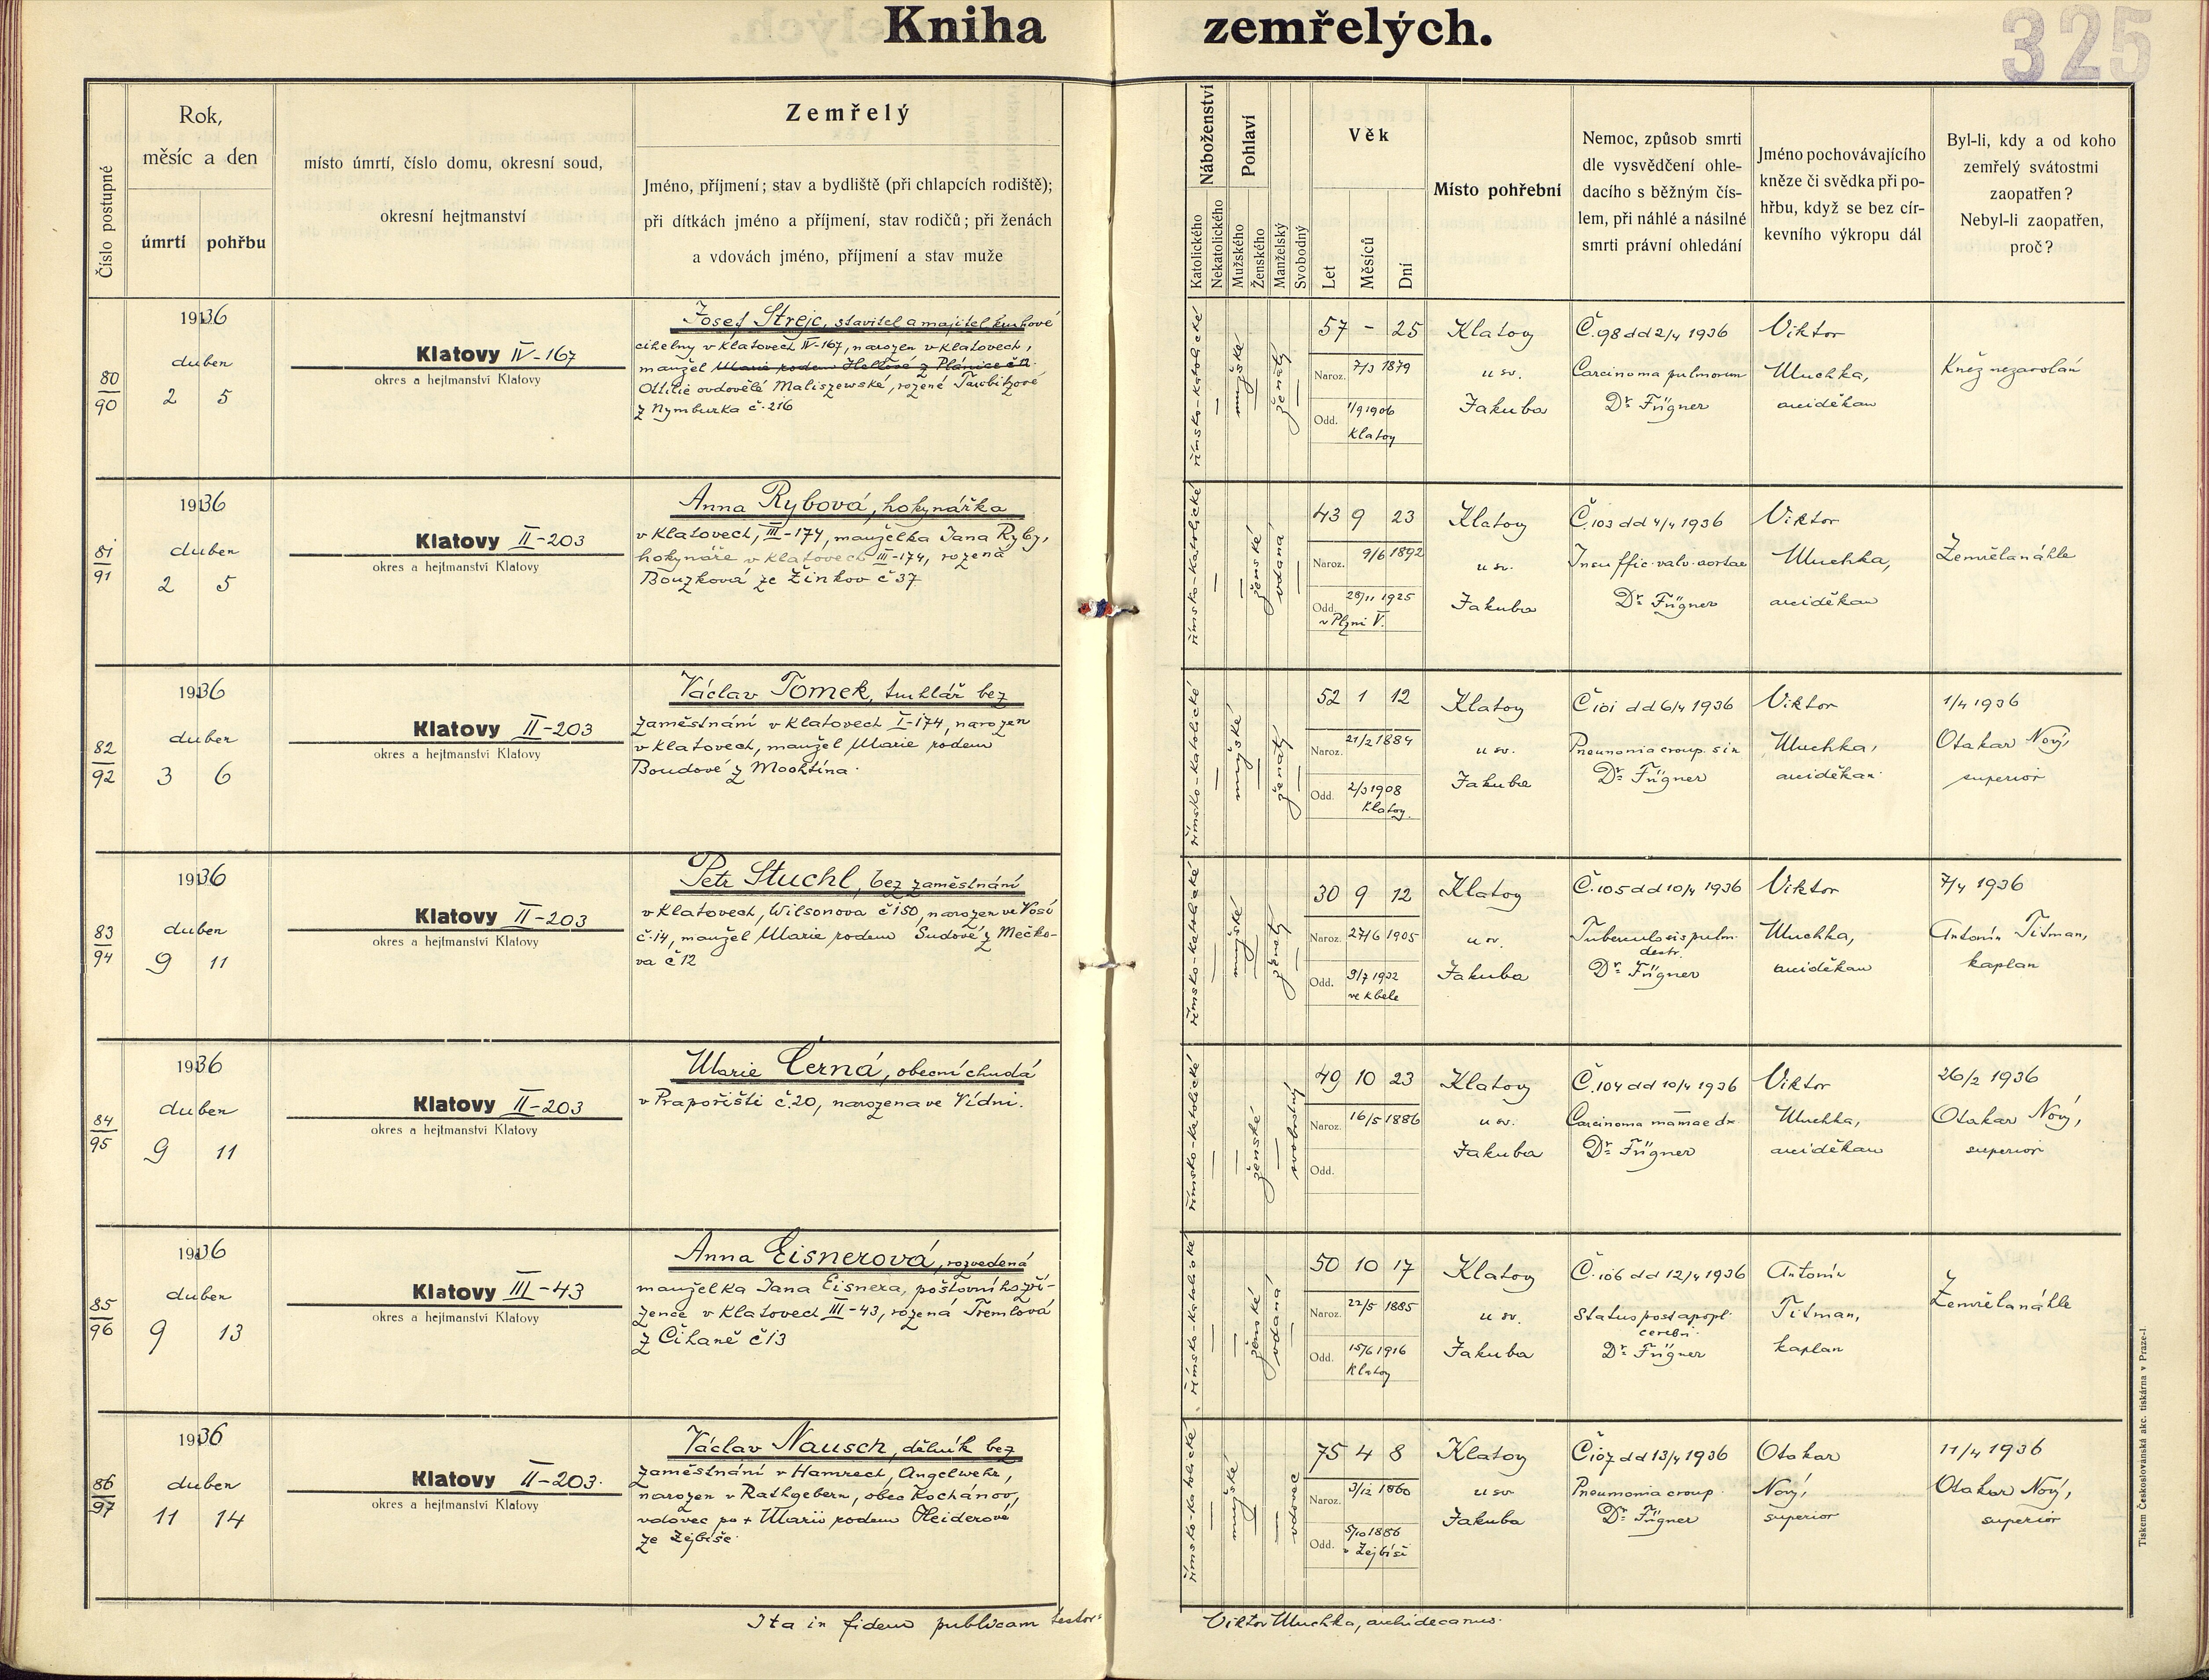 Kniha zemřelých.
325
Číslo postupné
Rok,
měsíc a den
úmrtí
pohřbu
místo úmrtí, číslo domu, okresní soud,
okresní hejtmanství
Zemřelý
Jméno, příjmení; stav a bydliště (při chlapcích rodiště);
při dítkách jméno a příjmení, stav rodičů; při ženách
a vdovách jméno, příjmení a stav muže
Náboženství
Katolického
Nekatolického
Pohlaví
Mužského
Ženského
Manželský
Svobodný
Věk
Let
Měsíců
Dní
Místo pohřební
Nemoc, způsob smrti
dle vysvědčení ohle-
dacího s běžným čís-
lem, při náhlé a násilné
smrti právní ohledání
Jméno pochovávajícího
kněze či svědka při po-
hřbu, když se bez cír-
kevního výkropu dál
Byl-li, kdy a od koho
zemřelý svátostmi
zaopatřen?
Nebyl-li zaopatřen,
proč?
80
90
1936
duben
2 5
Klatovy IV-167
okres a hejtmanství Klatovy
Josef Strejc, stavitel a majitel kruhové
cihelny v Klatovech IV-167, narozen v Klatovech,
manžel Marie rodem Hellové z Plánice č.
Ottilie ovdovělé Maliszewské, rozené Taubitzové
z Nymburka č. 216
římsko-katolické
mužské
ženatý
57 - 25
Naroz. 7/3 1879
Odd. 1/9 1906
Klatovy
Klatovy
u sv.
Jakuba
Č. 98 dd 2/4 1936
Carcinoma pulmonum
Dr. Fügner
Viktor
Muchka,
arciděkan
Kněz nezavolán
81
91
1936
duben
2 5
Klatovy II-203
okres a hejtmanství Klatovy
Anna Rybová, hokynářka
v Klatovech, III-174, manželka Jana Ryby,
hokynáře v Klatovech III-174, rozená
Bouzková ze Žinkov č 37
římsko-katolické
ženské
vdaná
43 9 23
Naroz. 9/6 1892
Odd. 28/11 1925
v Plzni V.
Klatovy
u sv.
Jakuba
Č. 103 dd 4/4 1936
Insuffic. valv. aortae
Dr. Fügner
Viktor
Muchka,
arciděkan
Zemřela náhle
82
92
1936
duben
3 6
Klatovy II-203
okres a hejtmanství Klatovy
Václav Tomek, truhlář bez
zaměstnání v Klatovech I-174, narozen
v Klatovech, manžel Marie rodem
Boudové z Mochtína.
římsko-katolické
mužské
ženatý
52 1 12
Naroz. 21/2 1884
Odd. 2/3 1908
Klatovy.
Klatovy
u sv.
Jakuba
Č 101 dd 6/4 1936
Pneumonia croup. sin
Dr. Fügner
Viktor
Muchka,
arciděkan.
1/4 1936
Otakar Nový,
superior
83
94
1936
duben
9 11
Klatovy II-203
okres a hejtmanství Klatovy
Petr Stuchl, bez zaměstnání
v Klatovech, Wilsonova č 150, narozen ve Vosí
č. 14, manžel Marie rodem Sudové z Mečko-
va č 12
římsko-katolické
mužské
ženatý
30 9 12
Naroz. 27/6 1905
Odd. 9/7 1932
ve Kbele
Klatovy
u sv.
Jakuba
Č. 105 dd 10/4 1936
Tuberculosis pulm.
destr.
Dr. Fügner
Viktor
Muchka,
arciděkan
7/4 1936
Antonín Titman,
kaplan
84
95
1936
duben
9 11
Klatovy II-203
okres a hejtmanství Klatovy
Marie Černá, obecní chudá
v Prapořišti č. 20, narozena ve Vídni.
římsko-katolické
ženské
svobodný
49 10 23
Naroz. 16/5 1886
Odd.
Klatovy
u sv.
Jakuba
Č. 104 dd 10/4 1936
Carcinoma mamae dx
Dr. Fügner
Viktor
Muchka,
arciděkan
26/2 1936
Otakar Nový,
superior
85
96
1936
duben
9 13
Klatovy III-43
okres a hejtmanství Klatovy
Anna Eisnerová, rozvedená
manželka Jana Eisnera, poštovního zří-
zence v Klatovech III-43, rozená Tremlová
z Čihaně č 13
římsko-katolické
ženské
vdaná
50 10 17
Naroz. 22/5 1885
Odd. 15/6 1916
Klatovy
Klatovy
u sv.
Jakuba
Č. 106 dd 12/4 1936
Status post apopl.
cerebri.
Dr. Fügner
Antonín
Titman,
kaplan
Zemřela náhle
86
97
1936
duben
11 14
Klatovy II-203.
okres a hejtmanství Klatovy
Václav Nausch, dělník bez
zaměstnání v Hamrech, Angelwehr,
narozen v Rathgebern, obec Kochánov,
vdovec po + Marii rodem Heiderové
ze Zejbiše.
římsko-katolické
mužské
vdovec
75 4 8
Naroz. 3/12 1860
Odd. 5/10 1886
v Zejbiši
Klatovy
u sv
Jakuba
Č 107 dd 13/4 1936
Pneumonia croup.
Dr. Fügner
Otakar
Nový,
superior
11/4 1936
Otakar Nový,
superior
Ita in fidem publicam testor:
Viktor Muchka, archidecanus.
Tiskem Československá akc. tiskárna v Praze-I.